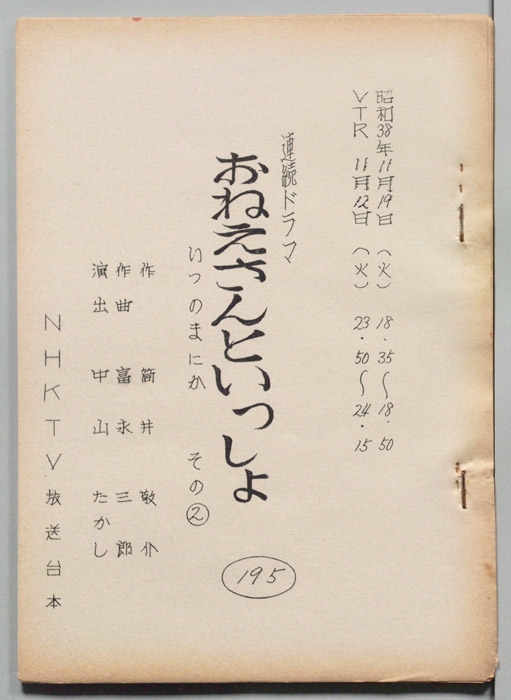 昭和38年11月19日（火）18.35〜18.50
VTR 11月12日（火）23.50〜24.15
連続ドラマ
おねえさんといっしょ
195
いつのまにか その②
作 筒井敬介
作曲 冨永三郎
演出 中山たかし
NHKTV放送台本